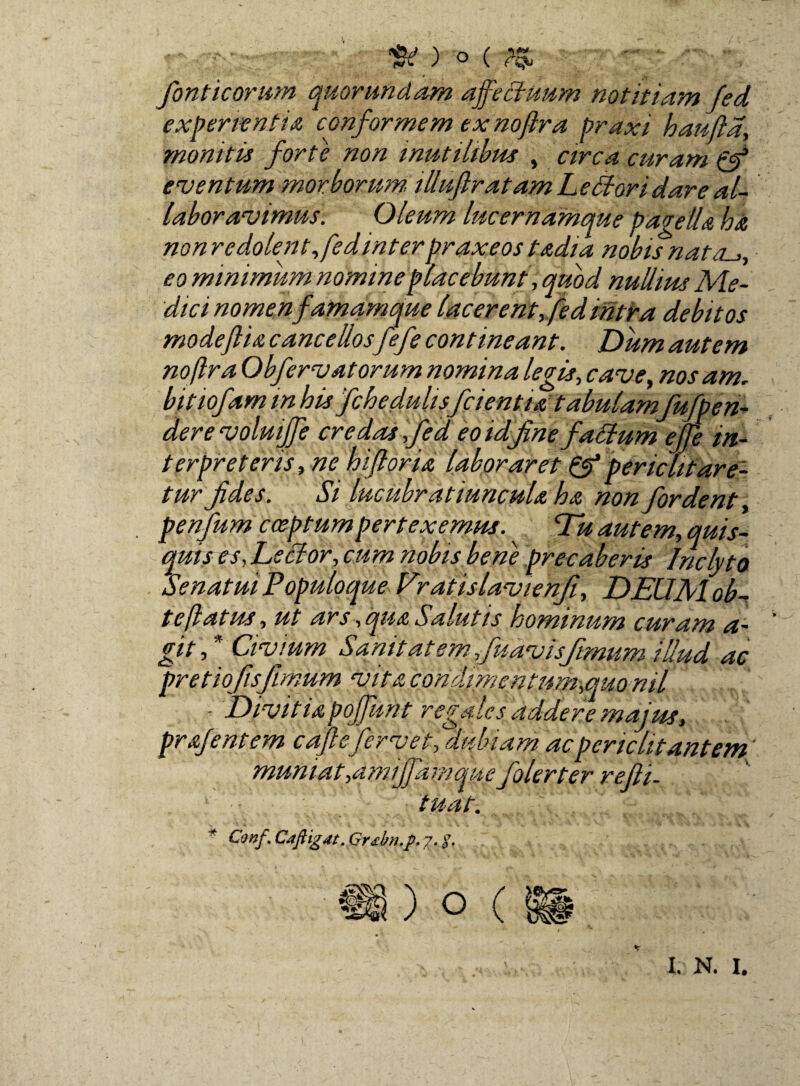 ) o (
ſonticorum quorundam affectuum notitiam ſed
experientiæ conformem ex noſtra praxi hauſtā,
monitis forte non inutilibus , circa curam &
eventum morborum illuſtratam Lectori dare al-
laboravimus. Oleum lucernamque pagellæ hæ
non redolent, ſed inter praxeos tædia nobis nata,
eo minimum nomine placebunt, quòd nullius Me-
dici nomen famamque lacerent, ſed intra debitos
modeſtiæ cancellos ſeſe contineant. Dum autem
noſtra Obſervatorum nomina legis, cave, nos am-
bitioſam in his ſchedulis ſcientiæ tabulam ſuſpen-
dere voluiſſe credas, ſed eo id fine factum eſſe in-
terpreteris, ne hiſtoriæ laboraret & periclitare-
tur fides. Si lucubratiunculæ hæ non ſordent,
penſum cœptum pertexemus. Tu autem, quis-
quis es, Lector, cum nobis bene precaberis Inclyto
Senatui Populoque Vratislavienſi, DEUM ob-
teſtatus, ut ars, quæ Salutis hominum curam a-
git, * Civium Sanitatem, ſuavisſimum illud ac
pretioſisſimum vitæ condimentum, quo nil
- Divitiæ poſſunt regales addere majus,
præſentem caſte ſervet, dubiam ac periclitantem
muniat, amiſſamque ſolerter reſti-
tuat.
* Conf. Caſtigat. Græbn. p. 7. 8.
) o (
I. N. I.